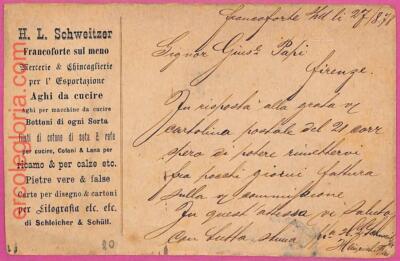 H. L. Schweitzer
Francoforte sul meno
Mercerie & Chincaglierie
per l' Esportazione
Aghi da cucire
Aghi per machine da cucire
Bottoni di ogni Sorta
filati di cotone di seta & rete
per cucire, Cotoni & Lana per
ricamo & per calze etc.
Pietre vere & false
Carte per disegno & cartoni
per Litografia etc. etc.
di Schleicher & Schüll.
ercoledoria.com
francoforte s/M li 27/8/78
Signor Gius.e Papi
Firenze.
In risposta alla grata vs
cartolina postale del 21 corr
spero di potere rimettervi
fra pochi giorni fattura
sulla vs commissione
In quest' attesa vi saluto
con tutta stima
20